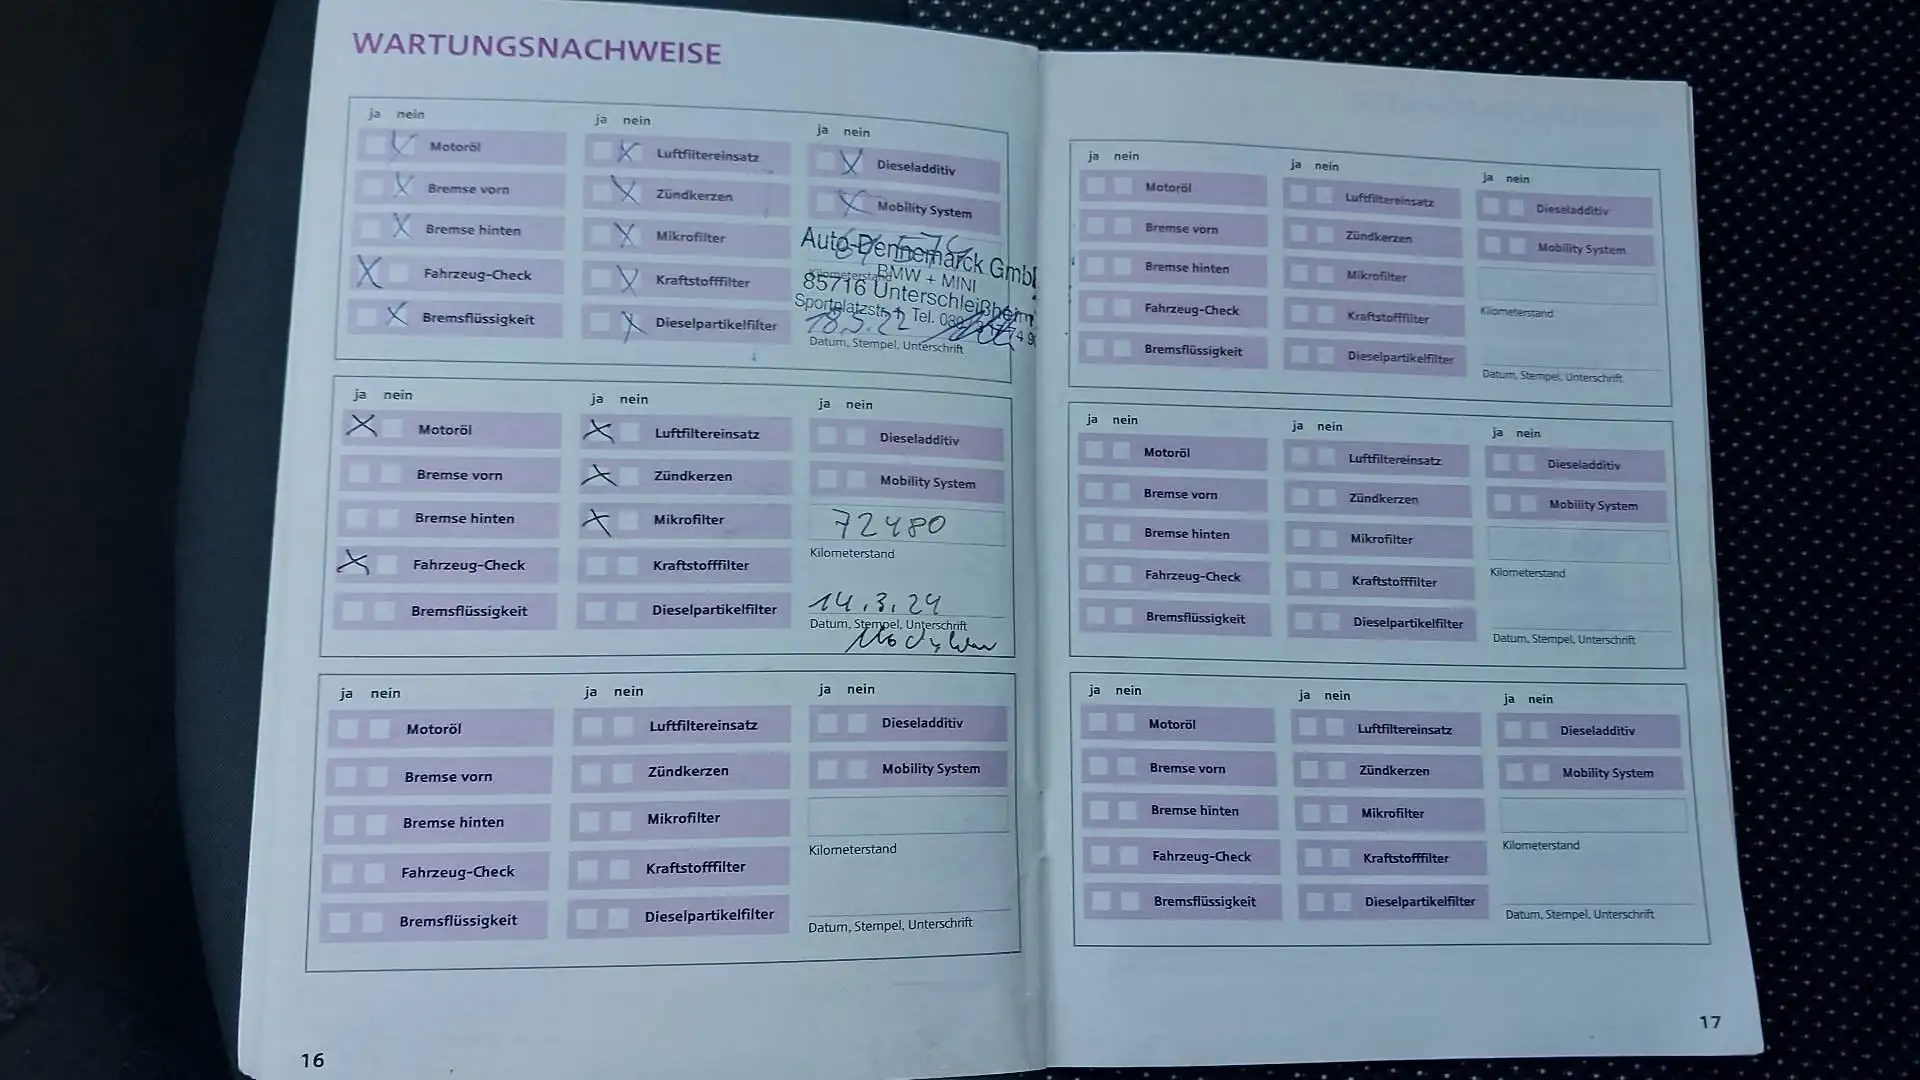 WARTUNGSNACHWEISE
ja nein
Motoröl
Bremse vorn
Bremse hinten
Fahrzeug-Check
Bremsflüssigkeit
ja nein
Luftfiltereinsatz
Zündkerzen
Mikrofilter
Kraftstofffilter
Dieselpartikelfilter
ja nein
Dieseladditiv
Mobility System
Auto-Dennemarck GmbH
Kilometerstand
BMW + MINI
85716 Unterschleißheim
Sportplatzstr. Tel.
18.5.22
Datum, Stempel, Unterschrift
ja nein
Motoröl
Bremse vorn
Bremse hinten
Fahrzeug-Check
Bremsflüssigkeit
ja nein
Luftfiltereinsatz
Zündkerzen
Mikrofilter
Kraftstofffilter
Dieselpartikelfilter
ja nein
Dieseladditiv
Mobility System
72480
Kilometerstand
14.3.24
Datum, Stempel, Unterschrift
ja nein
Motoröl
Bremse vorn
Bremse hinten
Fahrzeug-Check
Bremsflüssigkeit
ja nein
Luftfiltereinsatz
Zündkerzen
Mikrofilter
Kraftstofffilter
Dieselpartikelfilter
ja nein
Dieseladditiv
Mobility System
Kilometerstand
Datum, Stempel, Unterschrift
16
ja nein
Motoröl
Bremse vorn
Bremse hinten
Fahrzeug-Check
Bremsflüssigkeit
ja nein
Luftfiltereinsatz
Zündkerzen
Mikrofilter
Kraftstofffilter
Dieselpartikelfilter
ja nein
Dieseladditiv
Mobility System
Kilometerstand
Datum, Stempel, Unterschrift
ja nein
Motoröl
Bremse vorn
Bremse hinten
Fahrzeug-Check
Bremsflüssigkeit
ja nein
Luftfiltereinsatz
Zündkerzen
Mikrofilter
Kraftstofffilter
Dieselpartikelfilter
ja nein
Dieseladditiv
Mobility System
Kilometerstand
Datum, Stempel, Unterschrift
ja nein
Motoröl
Bremse vorn
Bremse hinten
Fahrzeug-Check
Bremsflüssigkeit
ja nein
Luftfiltereinsatz
Zündkerzen
Mikrofilter
Kraftstofffilter
Dieselpartikelfilter
ja nein
Dieseladditiv
Mobility System
Kilometerstand
Datum, Stempel, Unterschrift
17